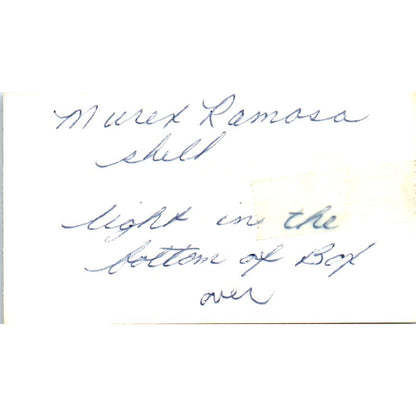 Murex Ramosa
shell
light in the
bottom of Box
over